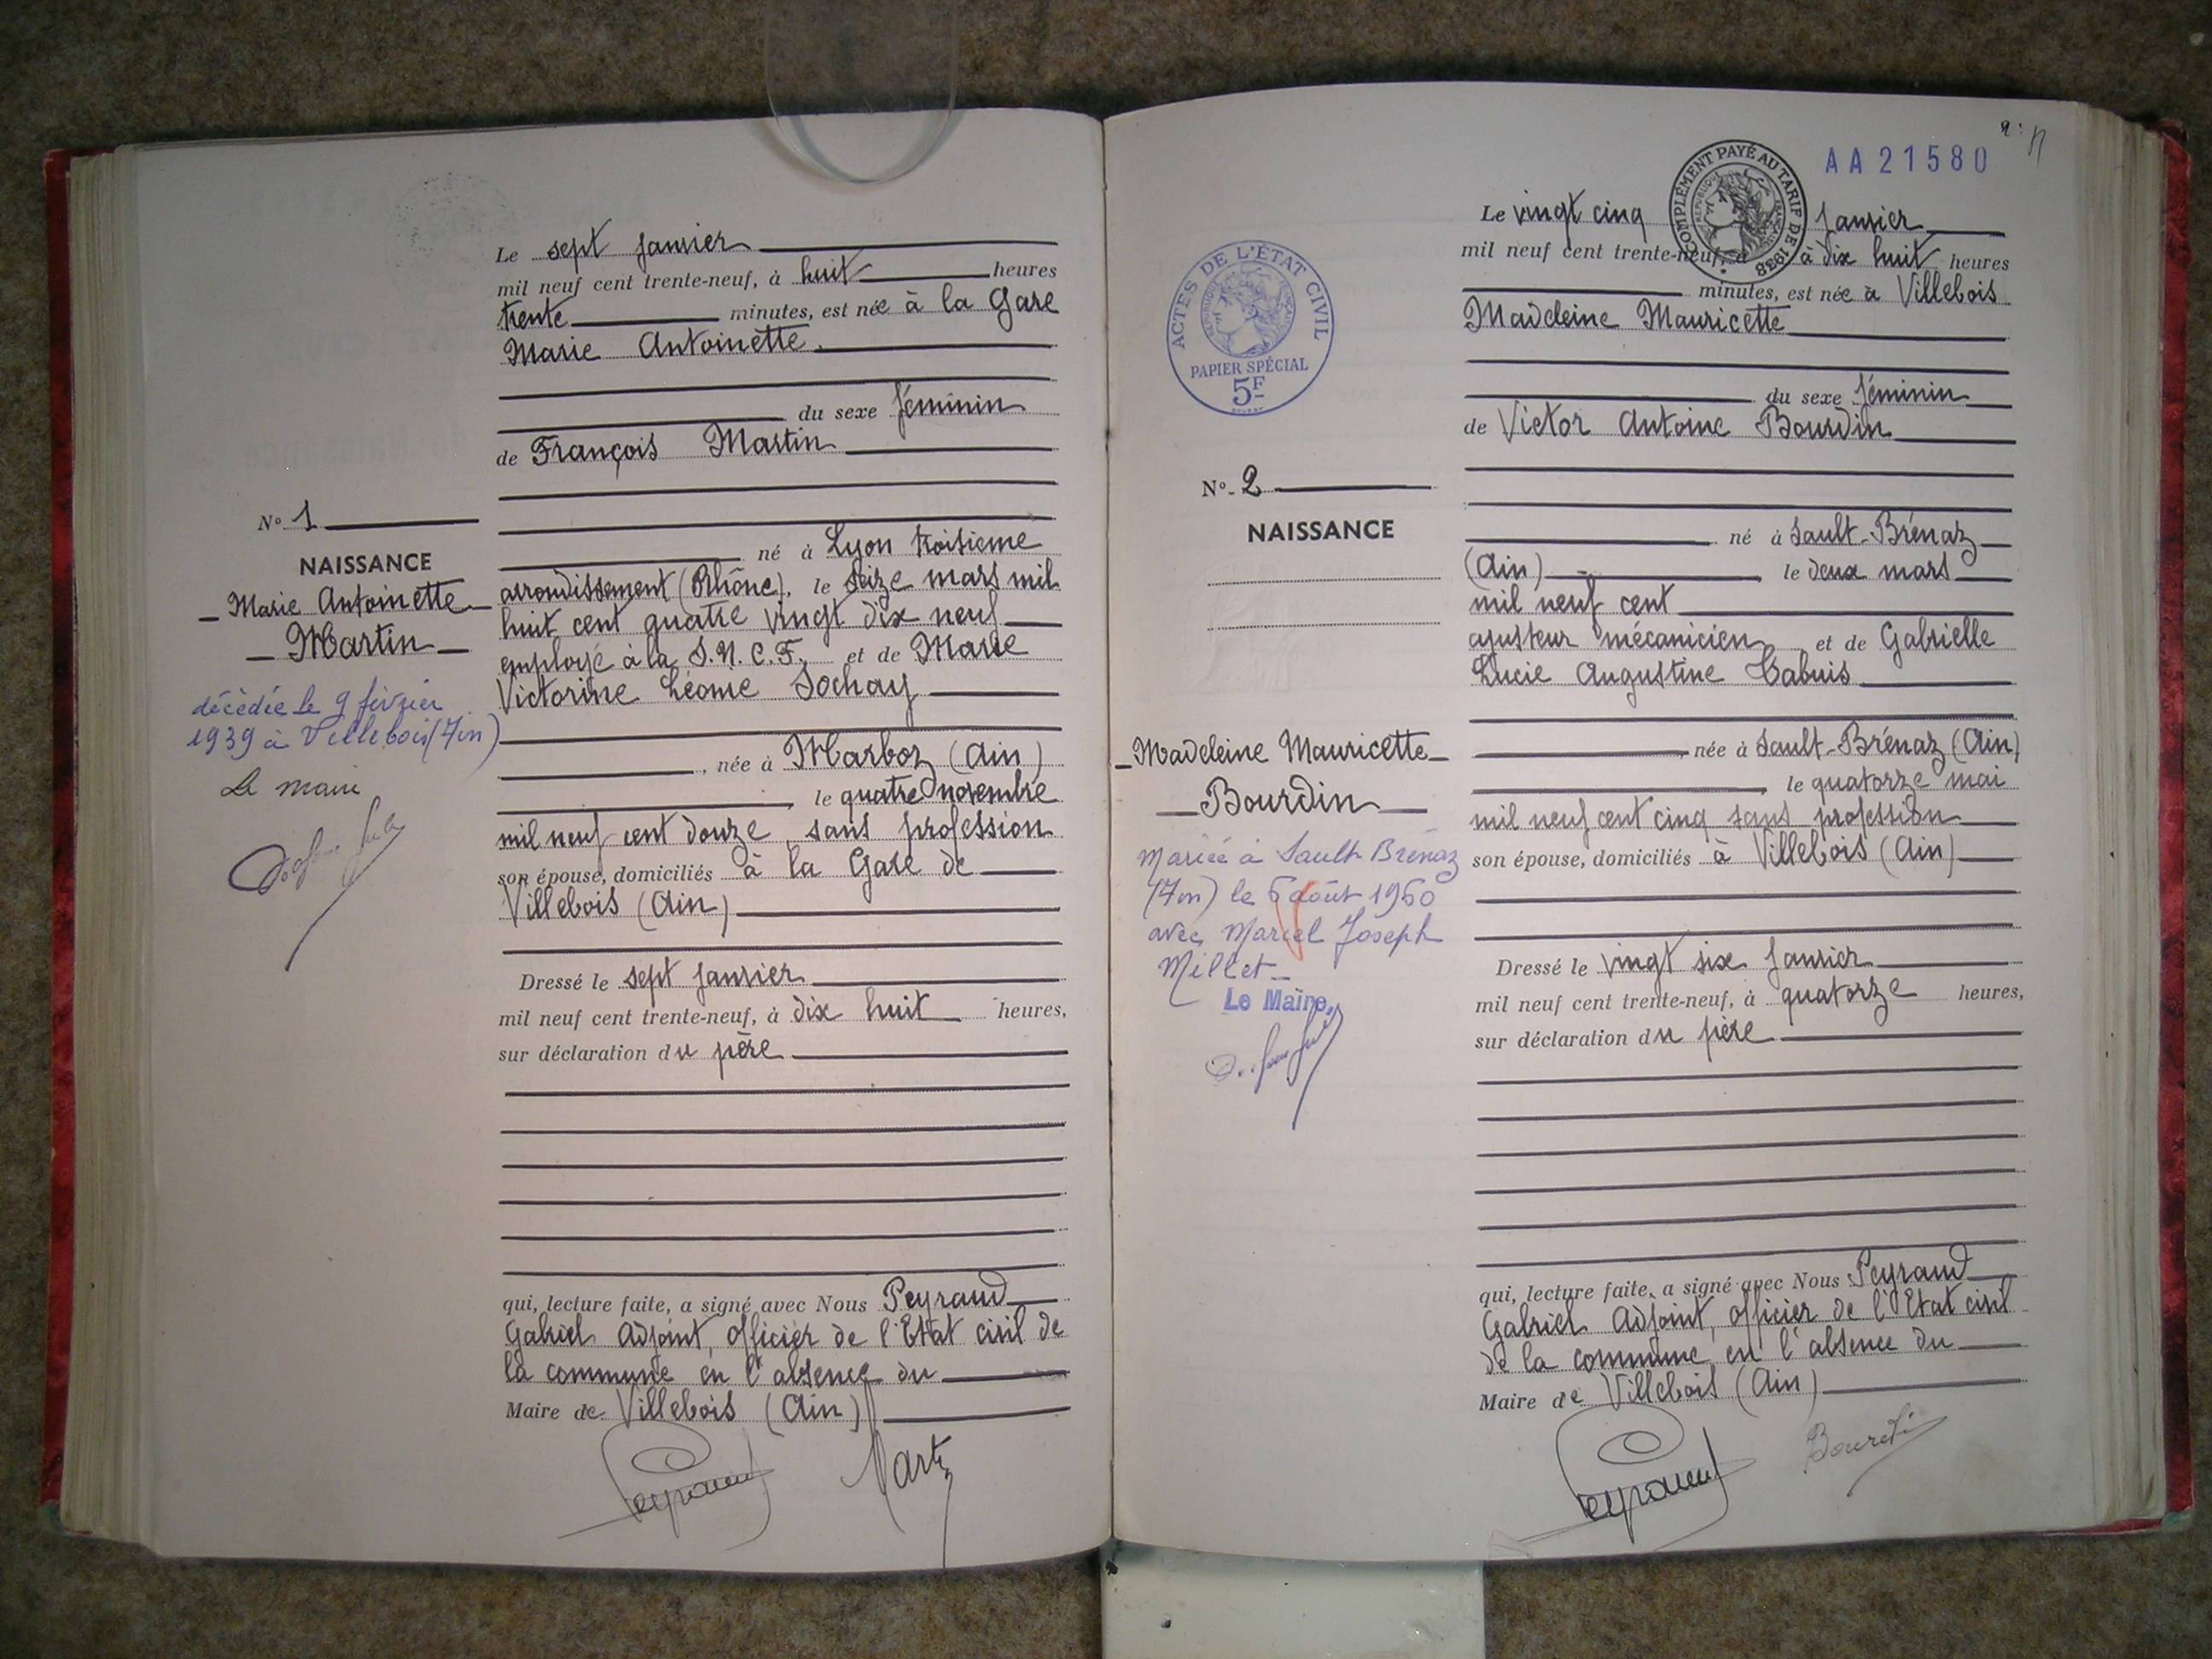 Le sept janvier
mil neuf cent trente-neuf, à huit heures
trente minutes, est née à la Gare
Marie Antoinette
du sexe féminin
de François Martin
N° 1
né à Lyon troisieme
NAISSANCE
arrondissement (Rhône), le seize mars mil
Marie Antoinette
huit cent quatre vingt dix neuf
Martin
employé à la S.N.C.F. et de Marie
Victorine Léonie Sochay
décédée le 9 février
1939 à Villebois (Ain)
Le maire
, née à Marboz (Ain)
, le quatre novembre
mil neuf cent douze, sans profession
son épouse, domiciliés à la Gare de
Villebois (Ain)
Dressé le sept janvier
mil neuf cent trente-neuf, à dix huit heures,
sur déclaration du père
qui, lecture faite, a signé avec Nous Peyraud
Gabriel Adjoint, officier de l'Etat civil de
la commune en l'absence du
Maire de Villebois (Ain)
Peyraud
AA21580
COMPLÉMENT PAYÉ AU TARIF DE 1938
Le vingt cinq janvier
mil neuf cent trente-neuf, à dix huit heures
minutes, est née à Villebois
Madeleine Mauricette
ACTES DE L'ÉTAT CIVIL
PAPIER SPÉCIAL
5F
du sexe féminin
de Victor Antoine Bourdin
N° 2
NAISSANCE
né à Sault-Brénaz
(Ain) le deux mars
mil neuf cent
ajusteur mécanicien et de Gabrielle
Lucie Augustine Cabuis
Madeleine Mauricette
Bourdin
née à Sault-Brénaz (Ain)
le quatorze mai
mil neuf cent cinq sans profession
son épouse, domiciliés à Villebois (Ain)
Mariée à Sault-Brénaz
(Ain) le 6 août 1960
avec Marcel Joseph
Millet
Le Maire,
Dressé le vingt six janvier
mil neuf cent trente-neuf, à quatorze heures,
sur déclaration du père
qui, lecture faite, a signé avec Nous Peyraud
Gabriel Adjoint, officier de l'Etat civil
de la commune en l'absence du
Maire de Villebois (Ain)
Peyraud
Bourdin